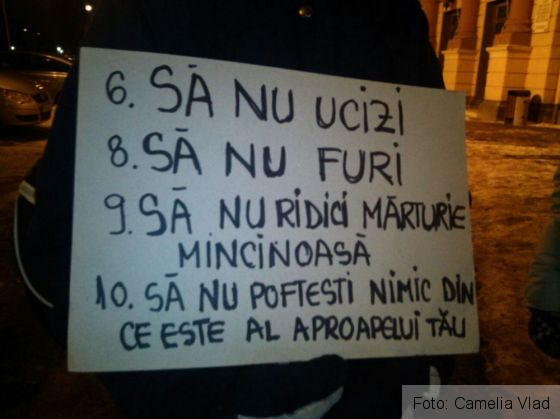 6. SĂ NU UCIZI
8. SĂ NU FURI
9. SĂ NU RIDICI MĂRTURIE
MINCINOASĂ
10. SĂ NU POFTESTI NIMIC DIN
CE ESTE AL APROAPELUI TĂU
Foto: Camelia Vlad